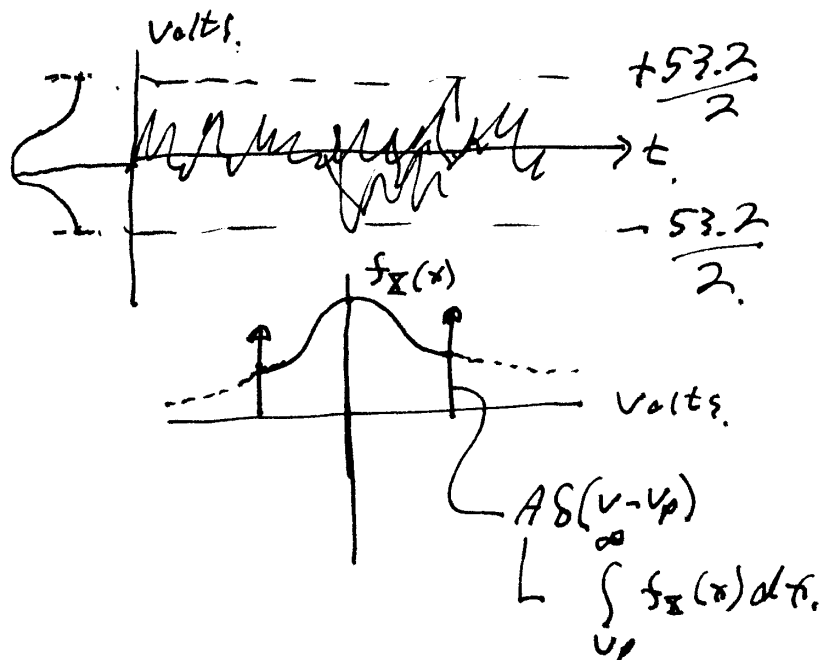 Volts.
+53.2/2
t.
-53.2/2.
fX(x)
Volts.
Aδ(v-vp)
∫ vp ∞ fX(x)dx.